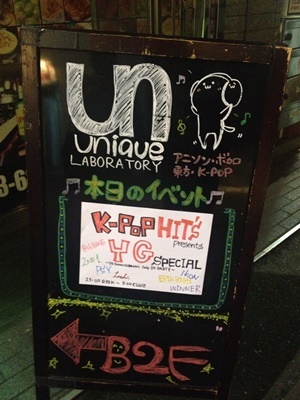 un
unique
LABORATORY
アニソン・ボカロ
東方・K-POP
本日のイベント
K-POP HIT's
presents
YG SPECIAL
BIGBANG
2NE1
iKON
PSY
WINNER
B2F